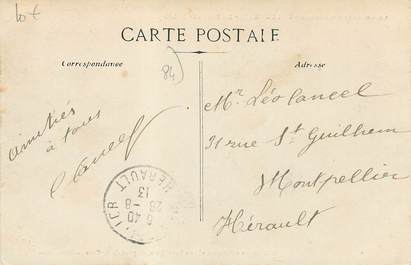 10 €
CARTE POSTALE
Correspondance
Adresse
84
amitiés
à tous
Cancel
Mr. Léo Cancel
31 rue St Guilhem
Montpellier
Hérault
6 40
28-8
13
HERAULT